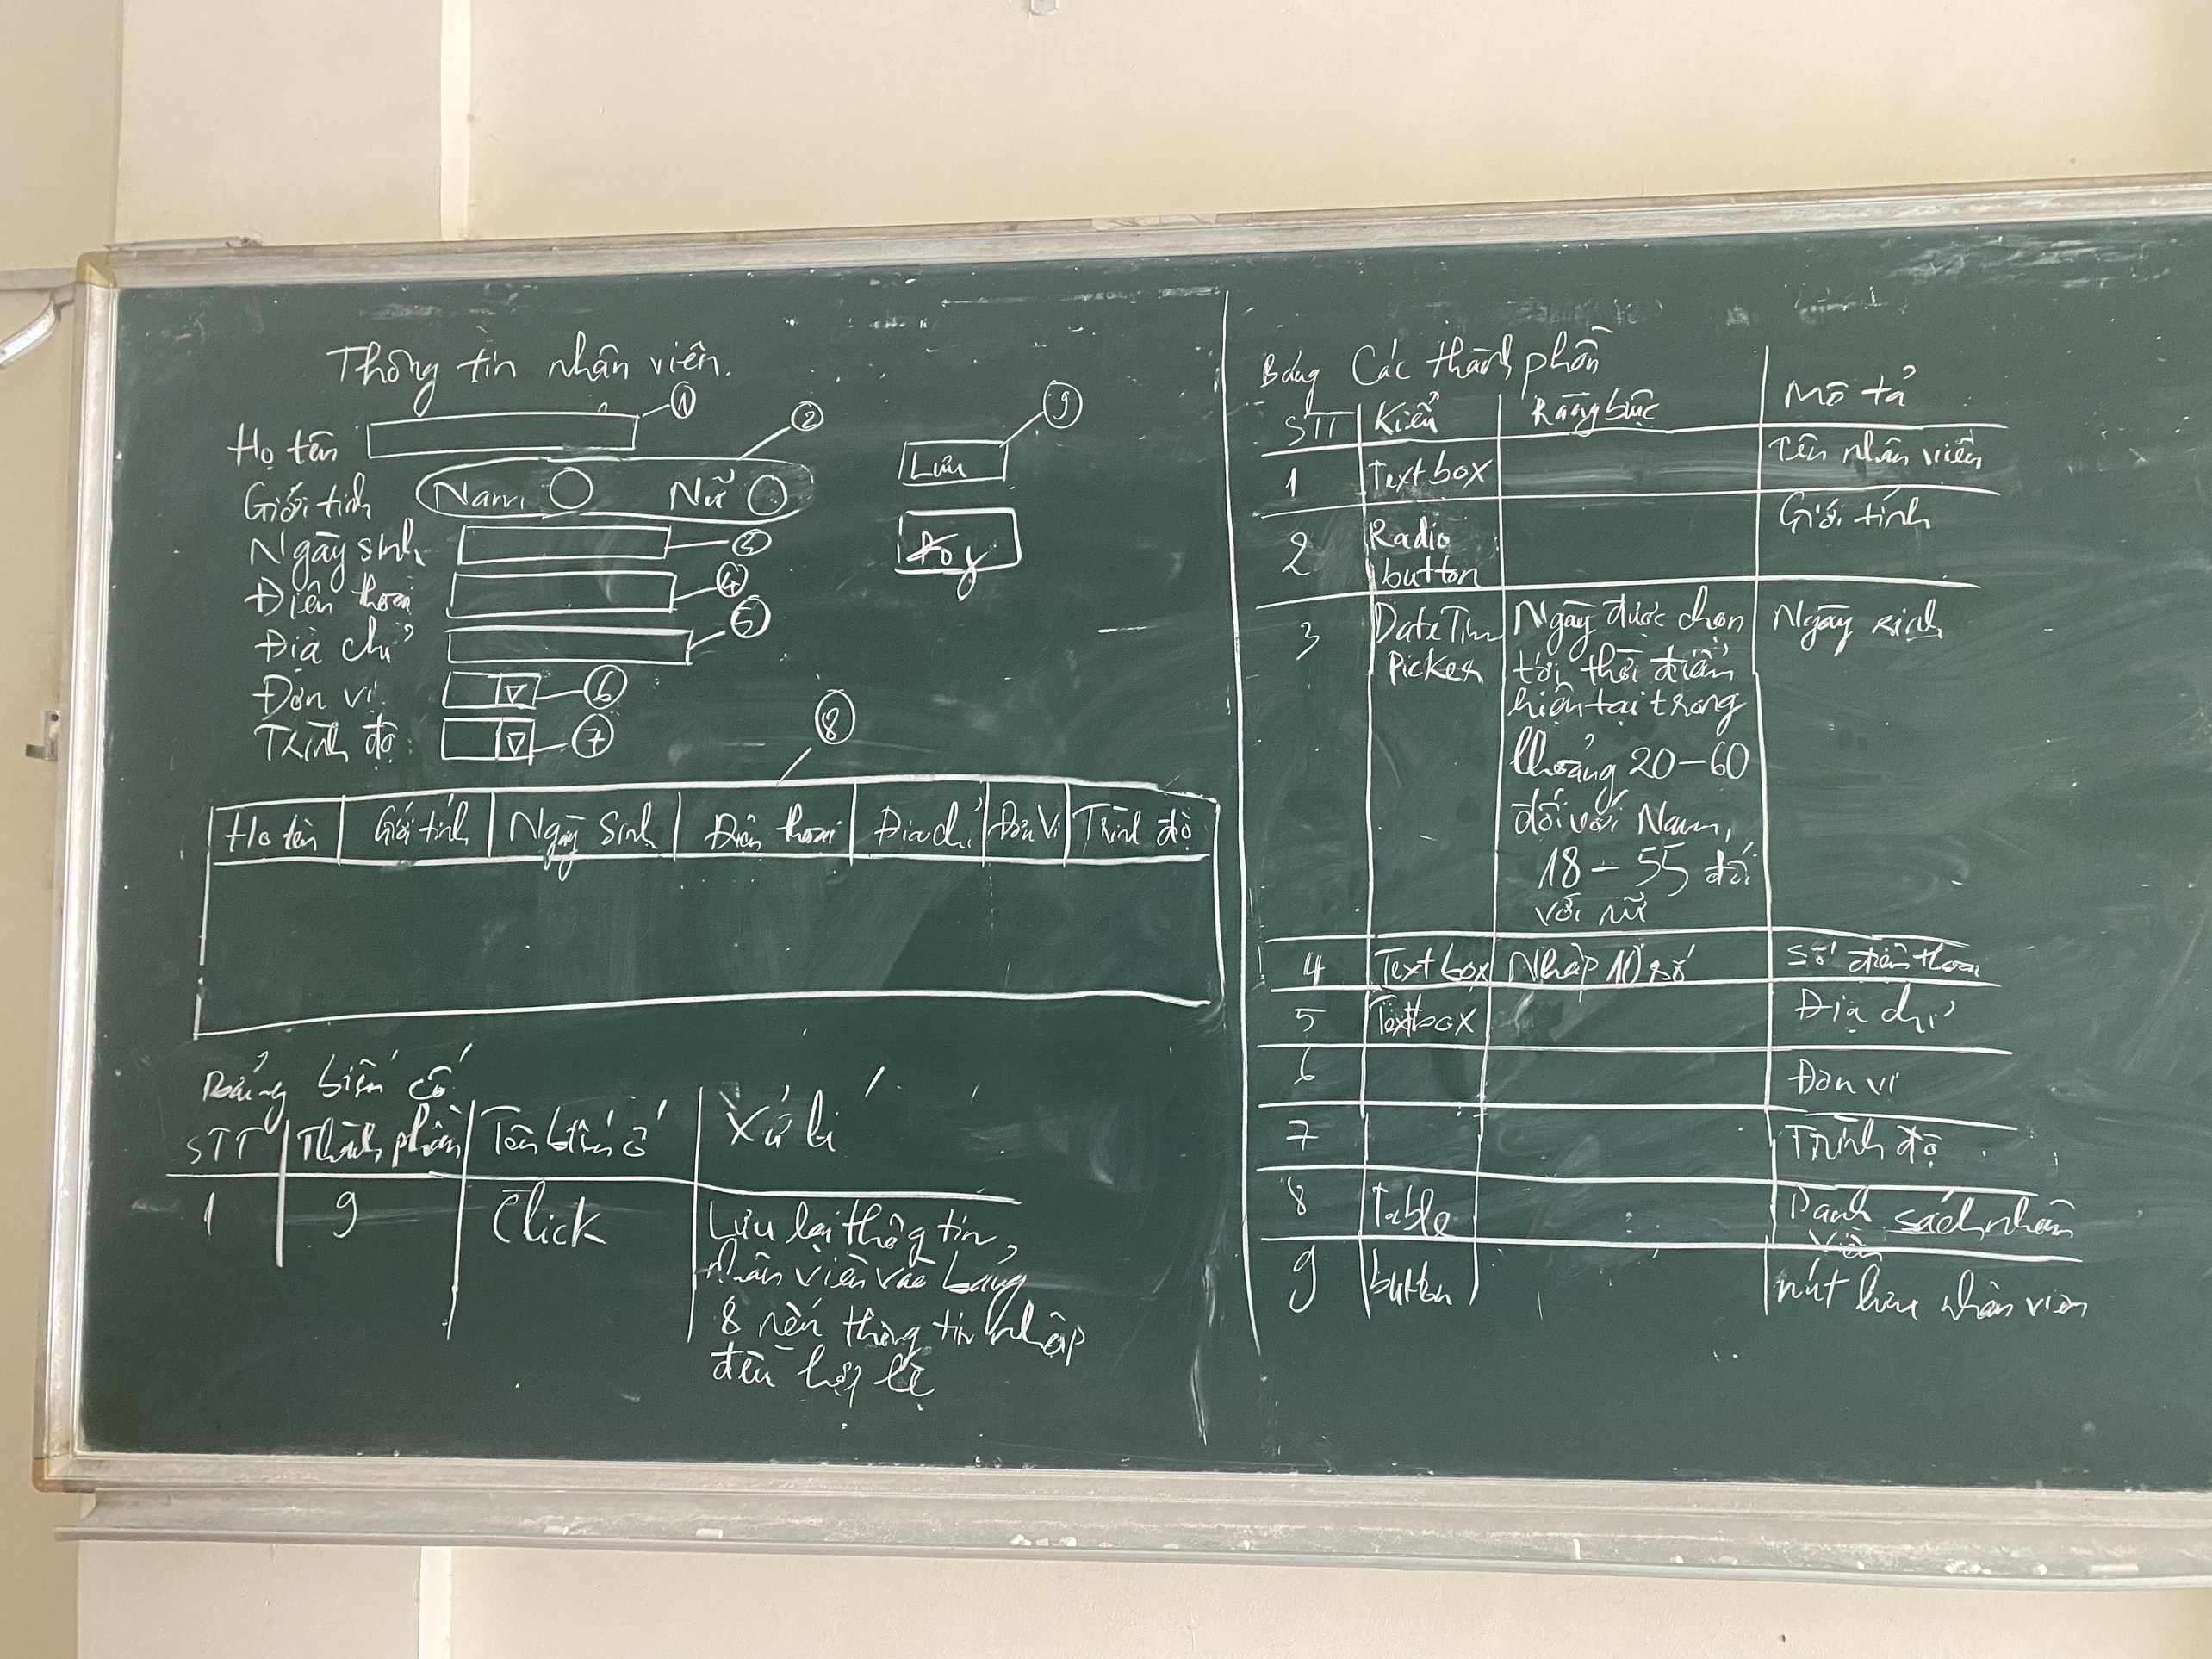 Thông tin nhân viên.
1
Họ tên
2
Giới tính Nam Nữ
Ngày sinh 3
Điện thoại 4
Địa chỉ 5
Đơn vị 6
Trình độ: 7
9
Lưu
8
Họ tên Giới tính Ngày Sinh Điện thoại Địa chỉ Đơn Vị Trình độ
Bảng biến cố
STT Thành phần Tên biến cố Xử lí
1 9 Click Lưu lại thông tin
nhân viên vào bảng
8 nếu thông tin nhập
đều hợp lệ
Bảng Các thành phần
STT Kiểu Ràng buộc Mô tả
1 Textbox Tên nhân viên
2 Radio button Giới tính
3 DateTim Picker Ngày được chọn Ngày sinh
tới thời điểm
hiện tại trong
khoảng 20-60
đối với Nam,
18-55 đối
với nữ
4 Textbox Nhập 10 số Số điện thoại
5 Textbox Địa chỉ
6 Đơn vị
7 Trình độ
8 Table Danh sách nhân
viên
9 button nút lưu nhân viên